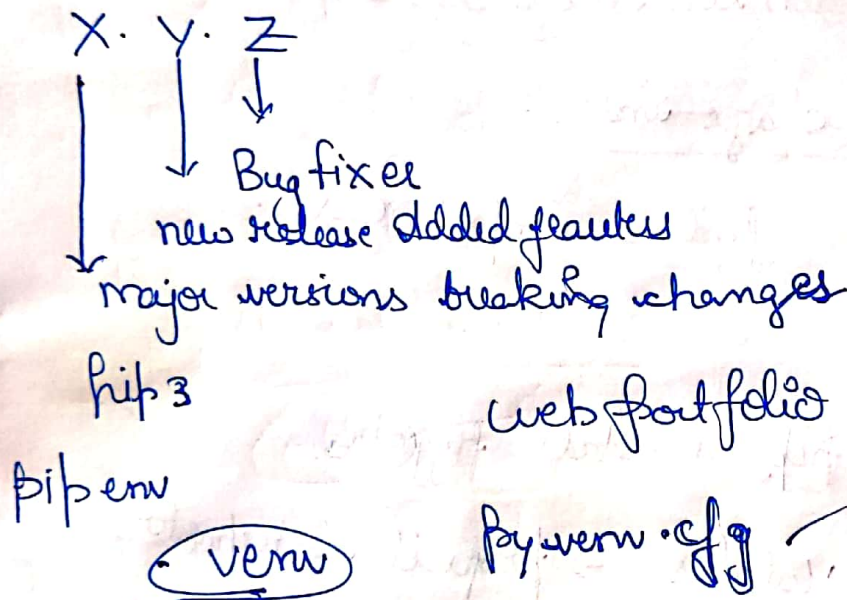 X. Y. Z
Bug fixes
new release added feautess
major versions breaking changes
pip3
web portfolio
pipenv
venv
pyvenv.cfg